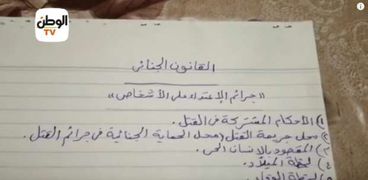 الوطن
TV
القانون الجنائى
"جرائم الإعتداء على الأشخاص"
١) الأحكام المشتركة فى القتل.
٢) محل جريمة القتل (محل الحماية الجنائية فى جرائم القتل.
٣) المقصود بالإنسان الحى.
٤) لحظة الميلاد.